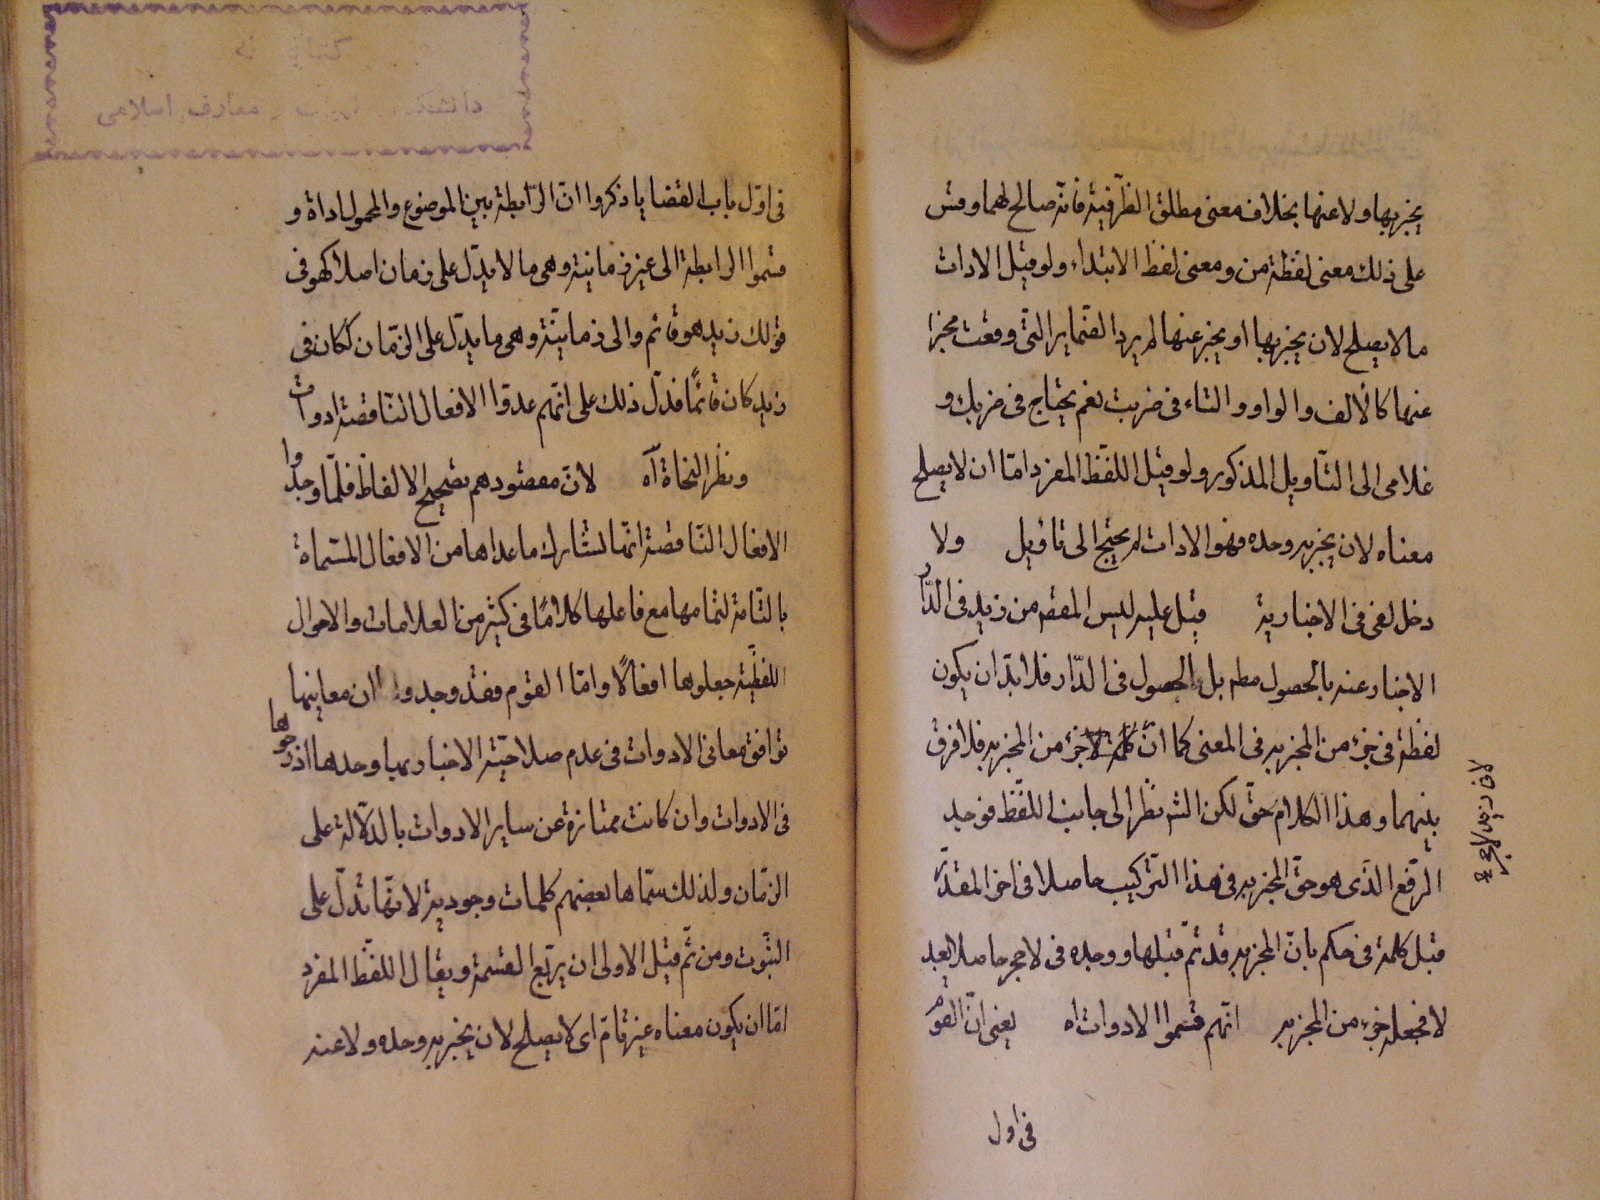 يخبر بها ولا عنها بخلاف معنى مطلق الظرفية فانه صالح لهما وقس
على ذلك معنى لفظة من ومعنى لفظ الابتداء ولو قيل الادات
ما لا يصلح لان يخبر بها او يخبر عنها لم يرد الضماير التى وقعت مخبرا
عنها كالالف والواو والتاء فى ضربت نعم يحتاج فى ضربك و
غلامى الى التاويل المذكور ولو قيل اللفظ المفرد اما ان لا يصلح
معناه لان يخبر به وحده فهو الادات لم يحتج الى تاويل ولا
دخل لفى فى الاخبارية قيل عليه ليس المقصم من زيد فى الدار
الاخبار عنه بالحصول مطم بل الحصول فى الدار فلا بد ان يكون
لفظة فى جزء من المخبر به فى المعنى كما ان كلمة لا جزء من المخبر به فلا فرق
بينهما وهذا الكلام حق لكن الشم نظر الى جانب اللفظ فوجد
الرفع الذى هو حق المخبر به فى هذا التركيب حاصلا فى اخر المقدر
قبل كلمة فى فحكم بان المخبر به قد تم قبلها ووجده فى لا حجر حاصلا بعد
لا فجعله جزء من المخبر به انهم قسموا الادوات اه يعنى ان القوم
فى اول
فى اول باب القضايا ذكروا ان الرابطة بين الموضوع والمحمول اداة و
قسموا الرابطة الى غير زمانية وهى ما لا يدل على زمان اصلا كهو فى
قولك زيد هو قائم والى زمانية وهى ما يدل على الزمان ككان فى
زيد كان قائما فدل ذلك على انهم عدوا الافعال الناقصة ادوات
ونظر النحاة آه لان مقصودهم تصحيح الالفاظ فلما وجدوا
الافعال الناقصة انها تشارك ما عداها من الافعال المسماة
بالتامة لتمامها مع فاعلها كلاما فى كثير من العلامات والاحوال
اللفظية جعلوها افعالا واما القوم فقد وجدوا ان معانيها
توافق معانى الادوات فى عدم صلاحية الاخبار بها وحدها ادرجوها
فى الادوات وان كانت ممتازة عن ساير الادوات بالدلالة على
الزمان ولذلك سماها بعضهم كلمات وجودية لانها تدل على
الثبوت ومن ثم قيل الاولى ان يربع القسمة ويقال اللفظ المفرد
اما ان يكون معناه غير تام اى لا يصلح لان يخبر به وحده ولا عنه
معارف اسلامى